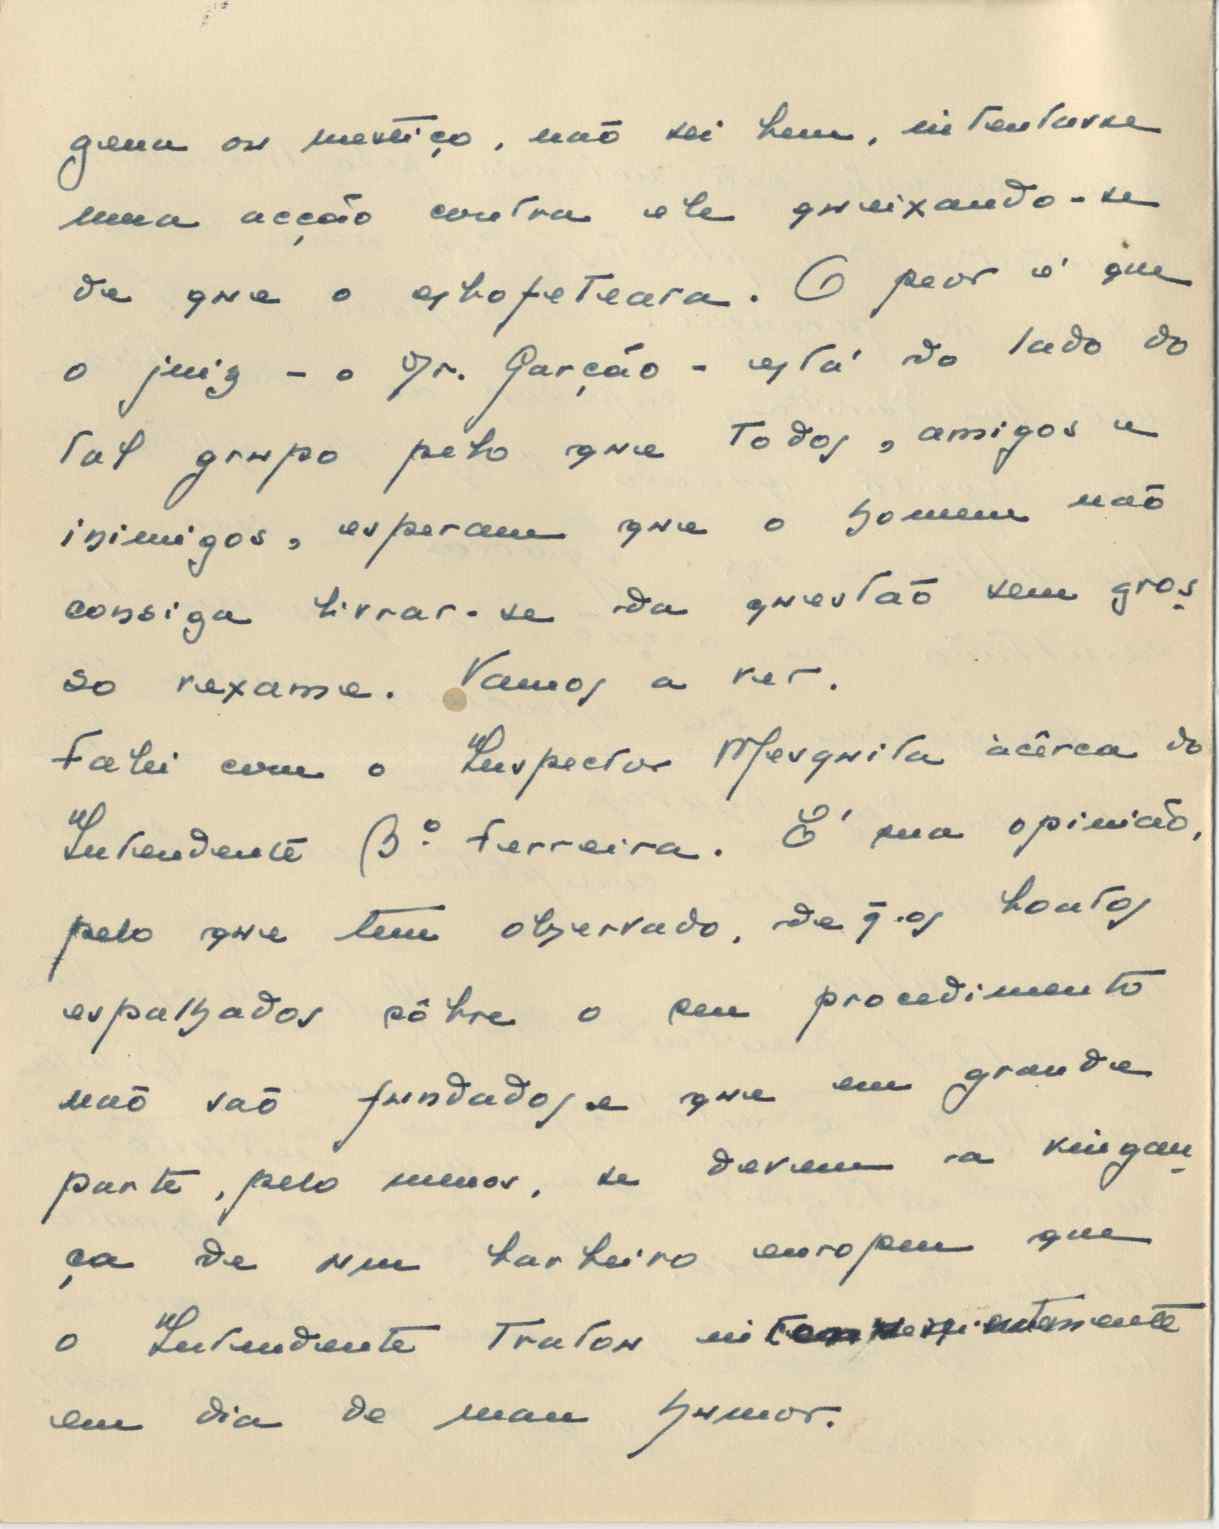 gena ou mestiço, não sei bem, intentasse
uma acção contra ele queixando-se
de que o esbofeteara. O peor é que
o juiz - o Dr. Garção - está do lado do
tal grupo pelo que todos, amigos e
inimigos, esperam que o homem não
consiga livrar-se da questão sem gros
so vexame. Vamos a ver.
Falei com o Inspector Mesquita àcêrca do
Intendente B.º Ferreira. É sua opinião,
pelo que tem observado, de q̃ os boatos
espalhados sôbre o seu procedimento
não são fundados e que em grande
parte, pelo menos, se devem à vingan
ça de um barbeiro europeu que
o Intendente tratou
em dia de mau humor.